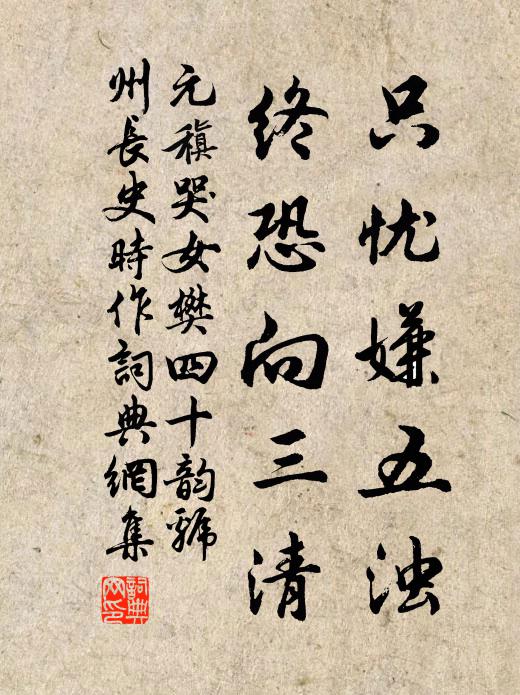 只忧嫌五浊
終恐向三清
元稹哭女樊四十韵虢
州長史時作詞典網集
詞典網印